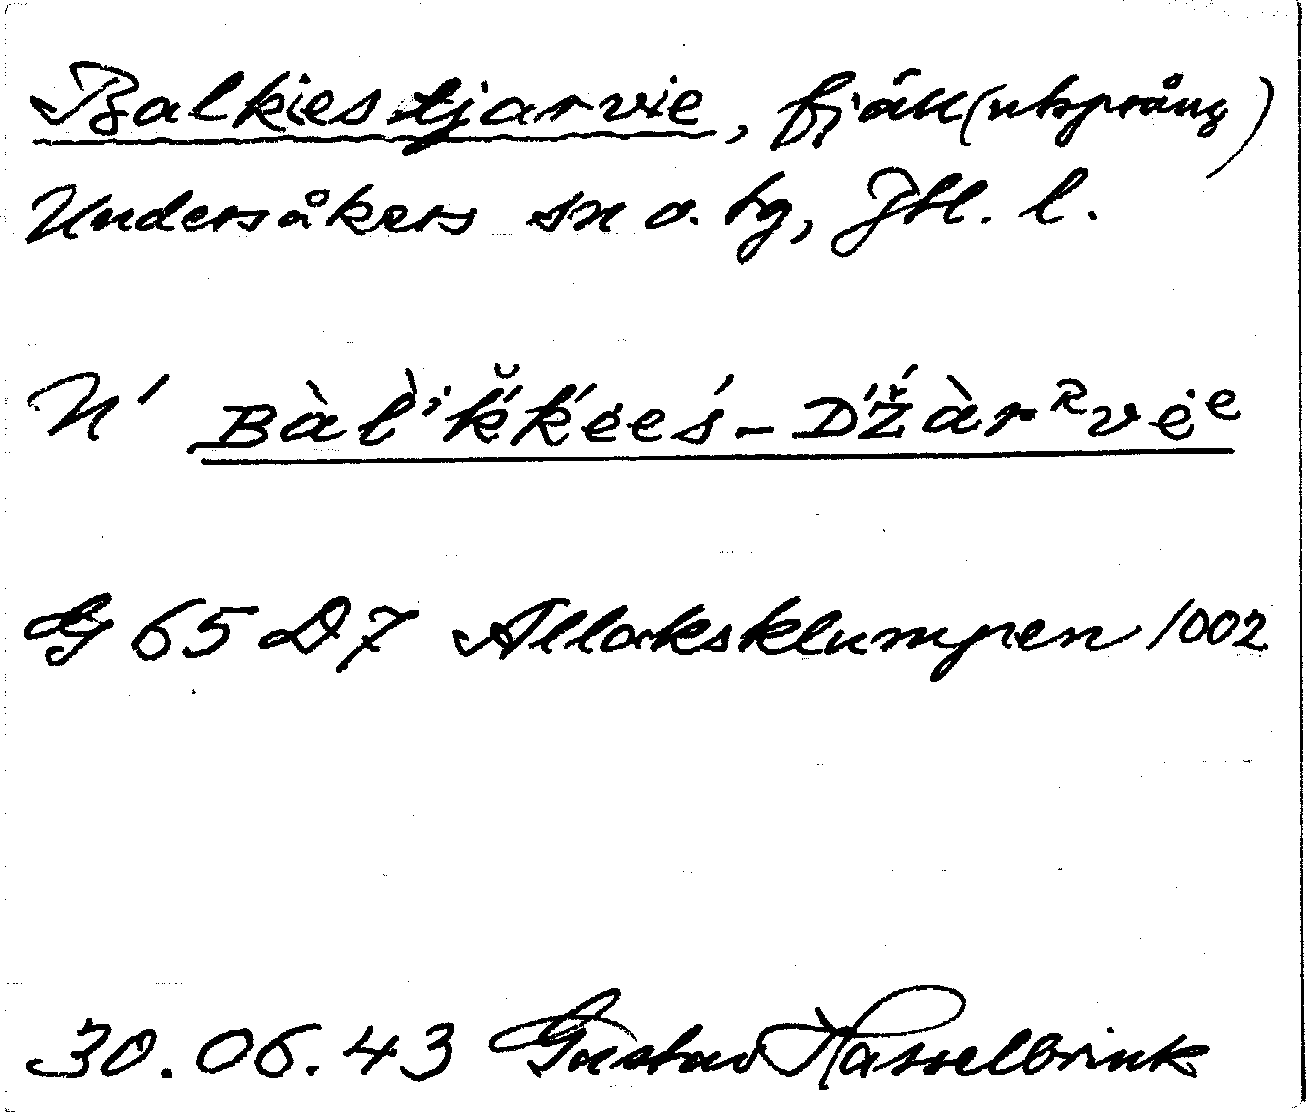 Balkiestjarvie, fjäll (utsprång)
Undersåkers sn o. tg, Jtl. l.
N' Bàl̀'k̆́k'ėeś-D'ž́àrᴿvėᵉ
G 65 D7 Allaksklumpen 1002
30.06.43 Gustav Hasselbrink